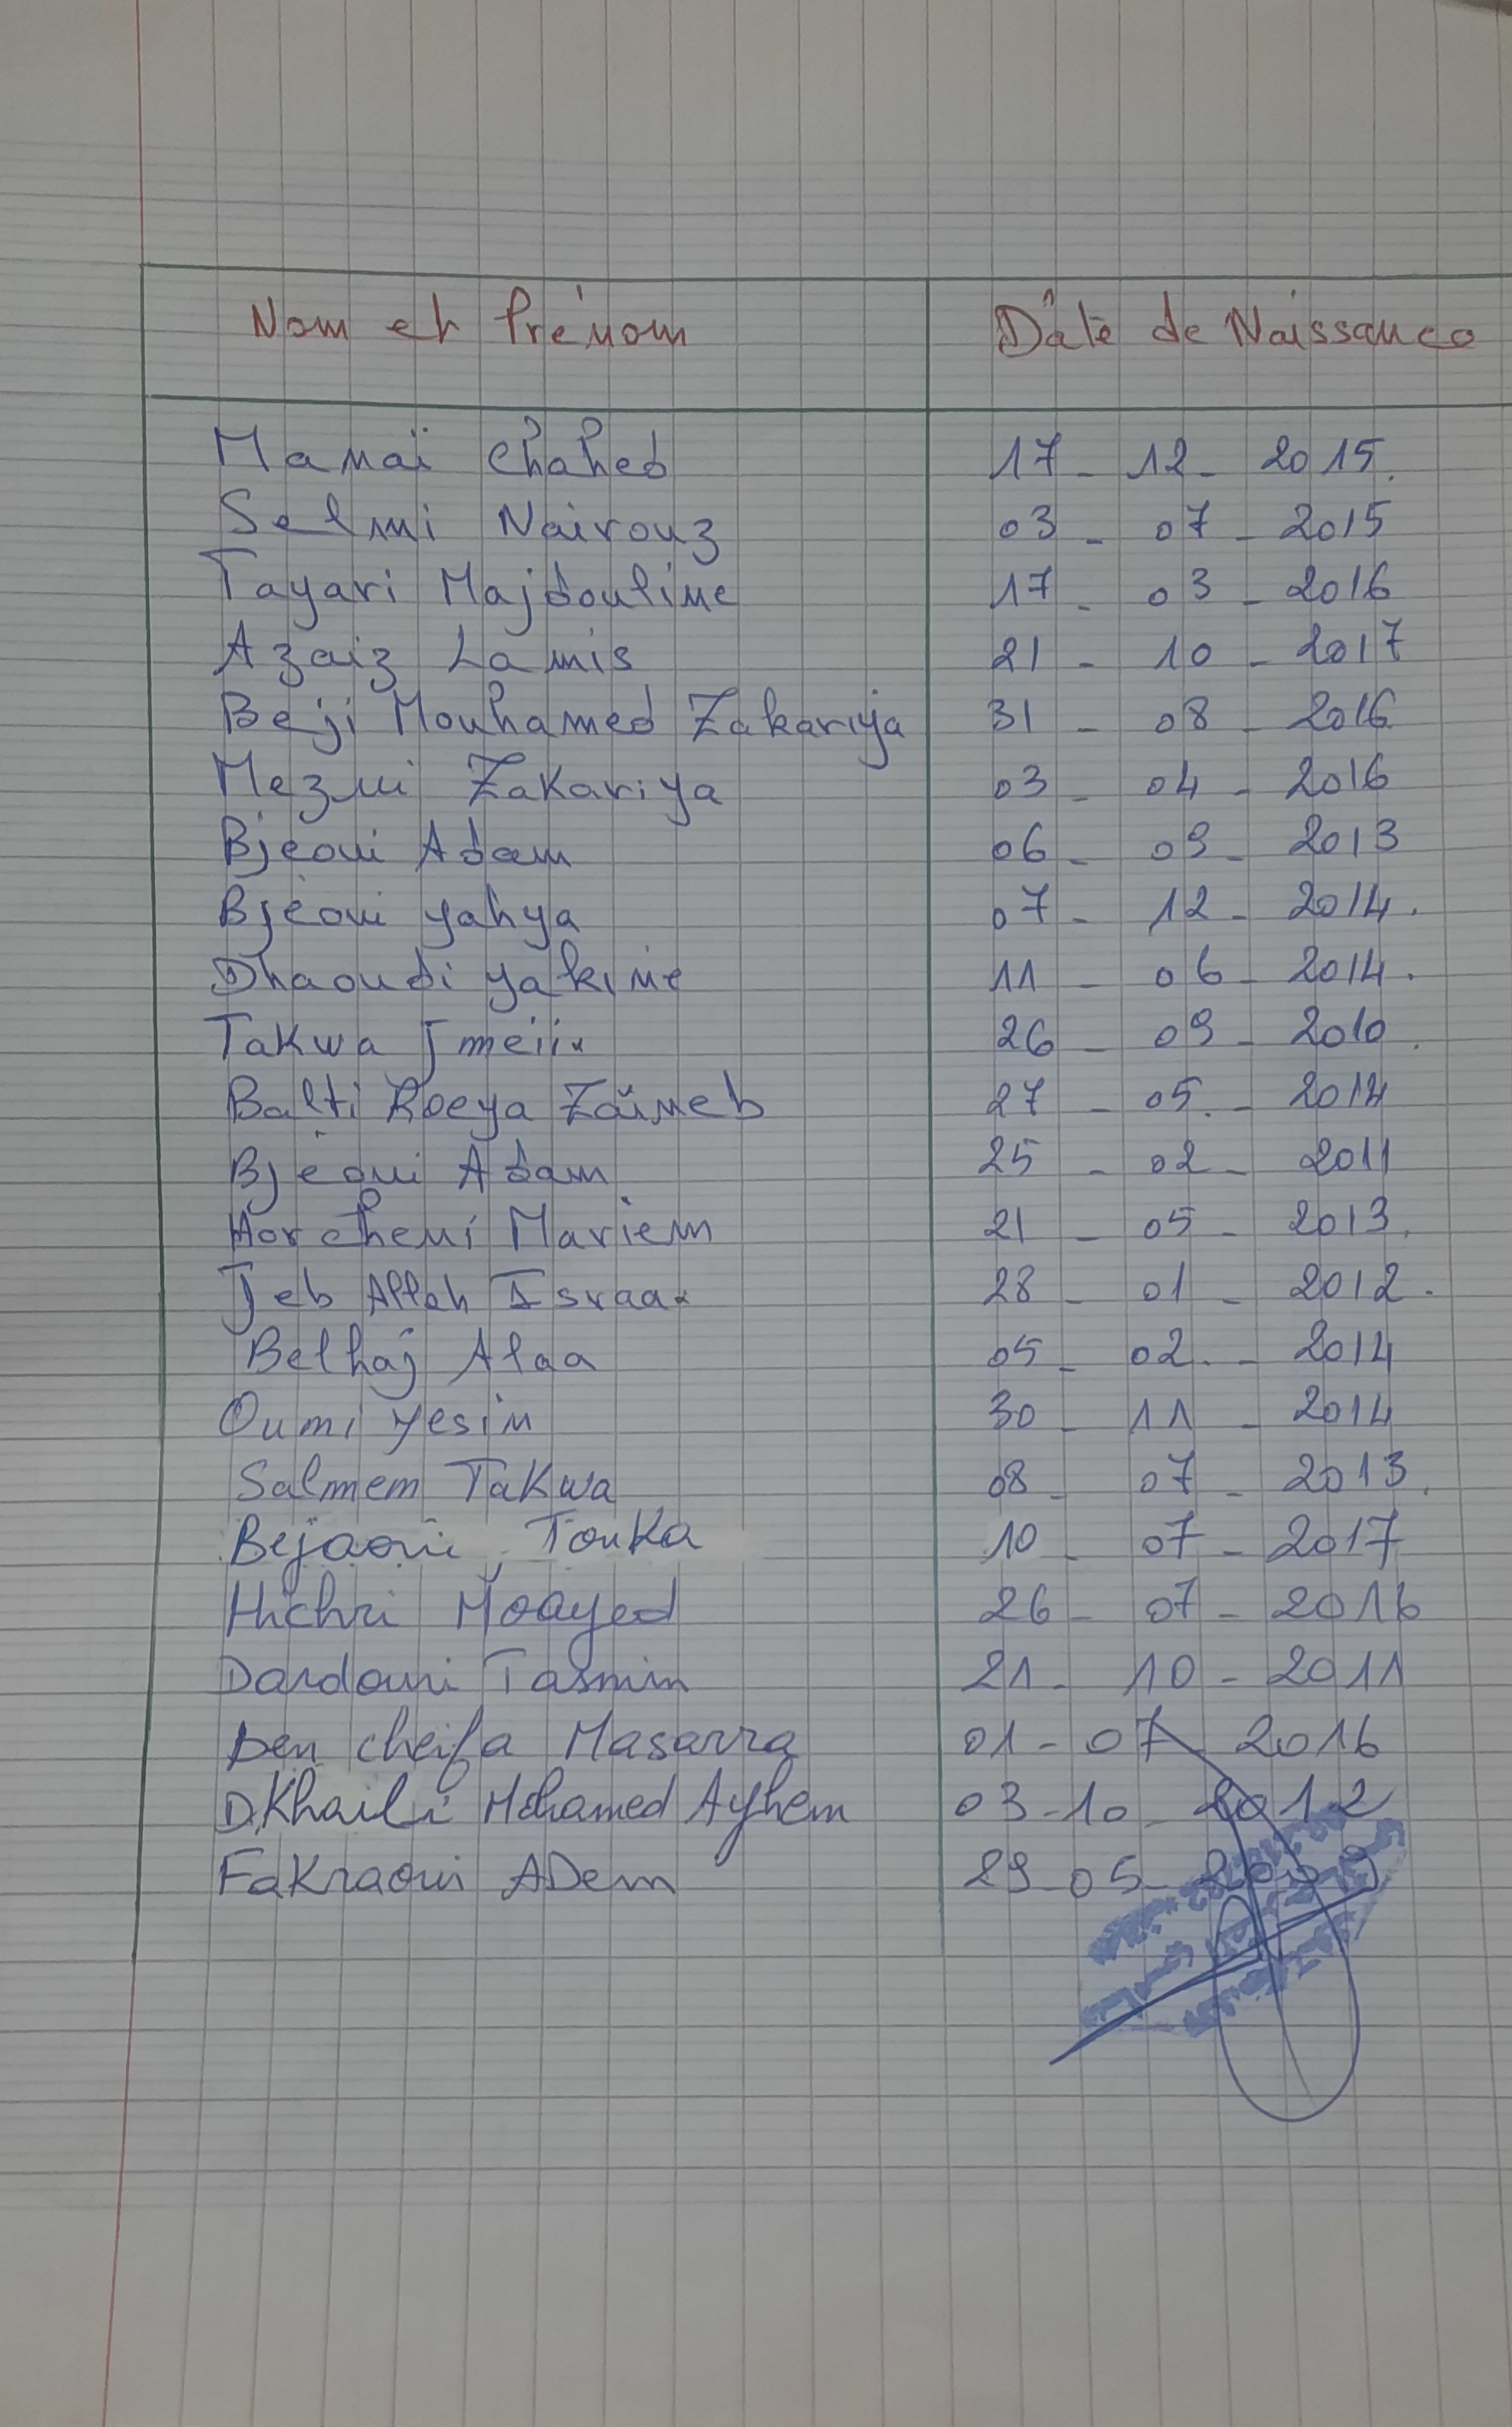 Nom et Prénom Dâte de Naissance
Mamaï Chahed 17 - 12 - 2015.
Selmi Nairouz 03 - 07 - 2015
Tayari Majdouline 17 - 03 - 2016
Azaiz Lamis 21 - 10 - 2017
Beji Mouhamed Zakariya 31 - 08 - 2016
Mezni Zakariya 03 - 04 - 2016
Bjéoui Adam 06 - 09 - 2013
Bjéoui yahya 07 - 12 - 2014.
Dhaoudi yakine 11 - 06 - 2014.
Takwa 26 - 09 - 2010.
Balti Roeya Zaineb 27 - 05 - 2014
Bjéoui Adam 25 - 02 - 2011
Horcheni Mariem 21 - 05 - 2013.
Jeb Allah Israa 28 - 01 - 2012.
Belhaj Alaa 05 - 02 - 2014
Oumi yesin 30 - 11 - 2014
Salmem Takwa 08 - 07 - 2013.
Bejaoui Touka 10 - 07 - 2017
Hichri Moayed 26 - 07 - 2016
Dardouri Tasnim 21 - 10 - 2011
Ben cheifa Masarra 01 - 07 - 2016
DKhaili Mohamed Ayhem 03 - 10 - 2012
Fakraoui ADem 29 - 05 -